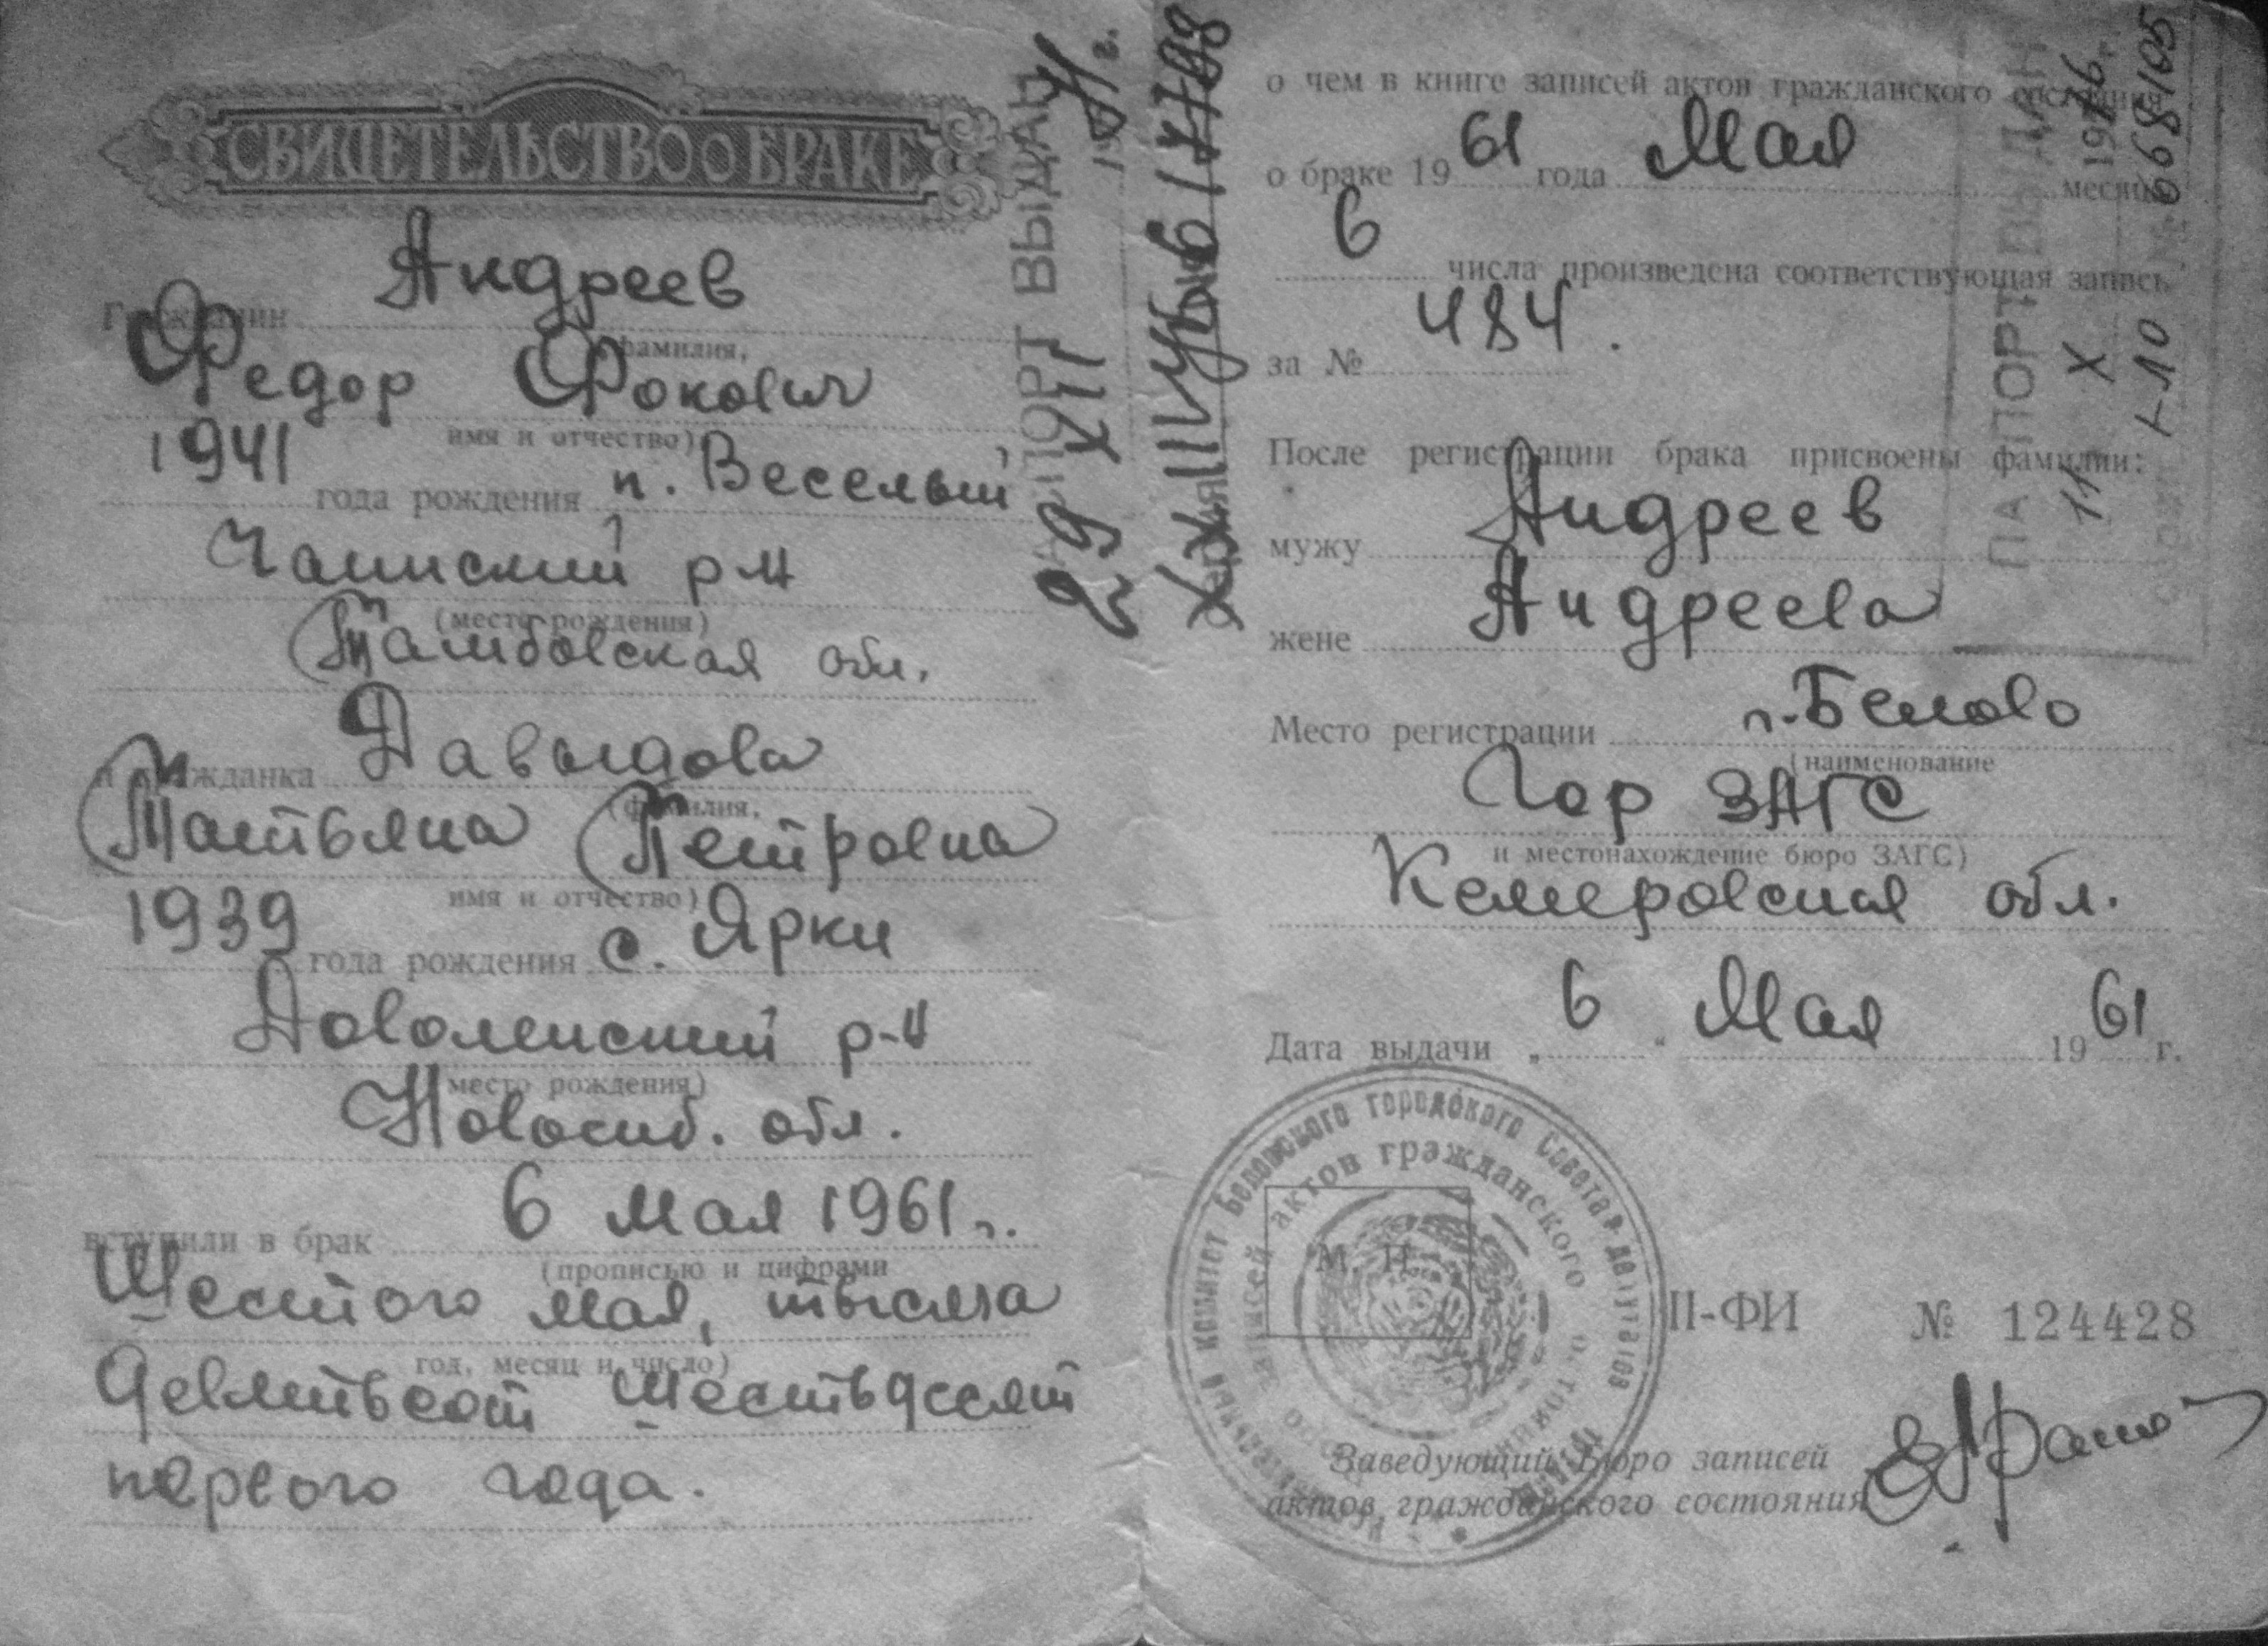 СВИДЕТЕЛЬСТВО о БРАКЕ
Андреев
Гражданин
(фамилия,
Федор Фокович
имя и отчество)
1941 года рождения п. Веселый
Чаинский р-н
(место рождения)
Тамбовская обл.
Давыдова
и гражданка
(фамилия,
Татьяна Петровна
имя и отчество)
1939 года рождения с. Ярки
Доволенский р-н
место рождения)
Новосиб. обл.
вступили в брак 6 мая 1961 г.
(прописью и цифрами
Шестого мая, тысяча
год, месяц и число)
девятьсот шестьдесят
первого года.
ПАСПОРТ ВЫДАН
29 XII 19 г.
о чем в книге записей актов гражданского состояния
о браке 19 61 года Мая месяца
6 числа произведена соответствующая запись
за № 484.
После регистрации брака присвоены фамилии:
мужу Андреев
жене Андреева
Место регистрации г. Белово
(наименование
Гор ЗАГС
и местонахождение бюро ЗАГС)
Кемеровская обл.
Дата выдачи „ 6 “ Мая 19 61 г.
ПАСПОРТ ВЫДАН
11 X 1976 г.
I-ЛО № 668105
Исполнительный комитет Беловского городского Совета депутатов
записей актов гражданского состояния
М. П.
II-ФИ № 124428
Заведующий Бюро записей
актов гражданского состояния